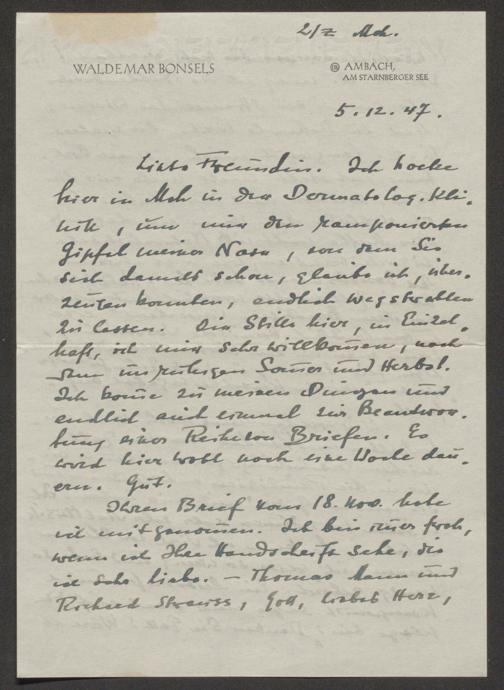 2/Z Mch.
WALDEMAR BONSELS
AMBACH,
AM STARNBERGER SEE
5.12.47.
Liebe Freundin. Ich hocke
hier in Mch in der Dermatolog. Kli-
nik, um mir den ramponierten
Gipfel meiner Nase, von dem Sie
sich damals schon, glaube ich, über-
zeugen konnten, endlich wegstrahlen
zu lassen. Die Stille hier, in Einzel-
haft, ist mir sehr willkommen, nach
dem unruhigen Sommer und Herbst.
Ich komme zu meinen Dingen und
endlich auch einmal zur Beantwor-
tung einer Reihe von Briefen. Es
wird hier wohl noch eine Woche dau-
ern. Gut.
Ihren Brief vom 18. Nov. habe
ich mitgenommen. Ich bin immer froh,
wenn ich Ihre Handschrift sehe, die
ich sehr liebe. — Thomas Mann und
Richard Strauss, Gott, liebes Herz,